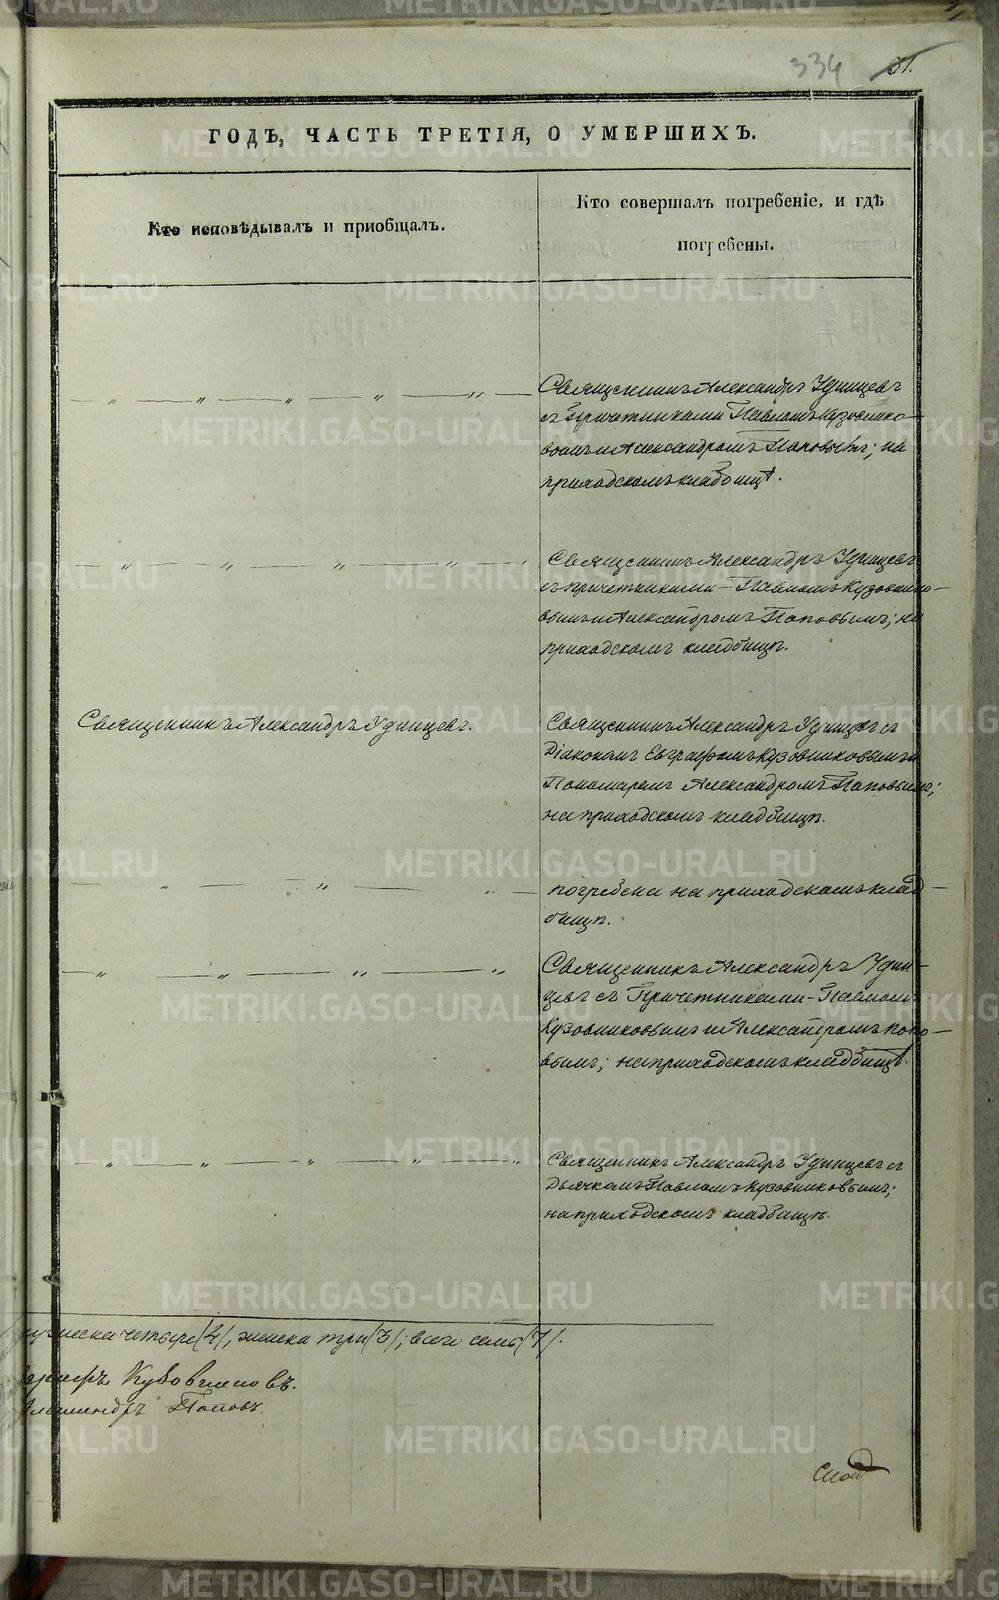 334
31.
ГОДЪ, ЧАСТЬ ТРЕТІЯ, О УМЕРШИХЪ.
Кто исповѣдывалъ и приобщалъ.
Кто совершалъ погребеніе, и гдѣ
погребены.
Священникъ Александръ Удинцевъ
съ Причетниками Павломъ Кузовнико-
вымъ и Александромъ Поповымъ; на
приходскомъ кладбищѣ.
Священникъ Александръ Удинцевъ
съ причетниками - Павломъ Кузовнико-
вымъ и Александромъ Поповымъ; на
приходскомъ кладбищѣ.
Священникъ Александръ Удинцевъ.
Священникъ Александръ Удинцевъ съ
Діакономъ Евграфомъ Кузовниковымъ и
Пономаремъ Александромъ Поповымъ;
на приходскомъ кладбищѣ.
погребена на приходскомъ клад-
бищѣ.
Священникъ Александръ Удин-
цевъ съ Причетниками - Павломъ
Кузовниковымъ и Александромъ Попо-
вымъ; на приходскомъ кладбищѣ.
Священникъ Александръ Удинцевъ съ
Дьячкомъ Павломъ Кузовниковымъ;
на приходскомъ кладбищѣ.
четыре (4), женска три (3); всего семь (7).
Кузовниковъ.
Поповъ.
METRIKI.GASO-URAL.RU